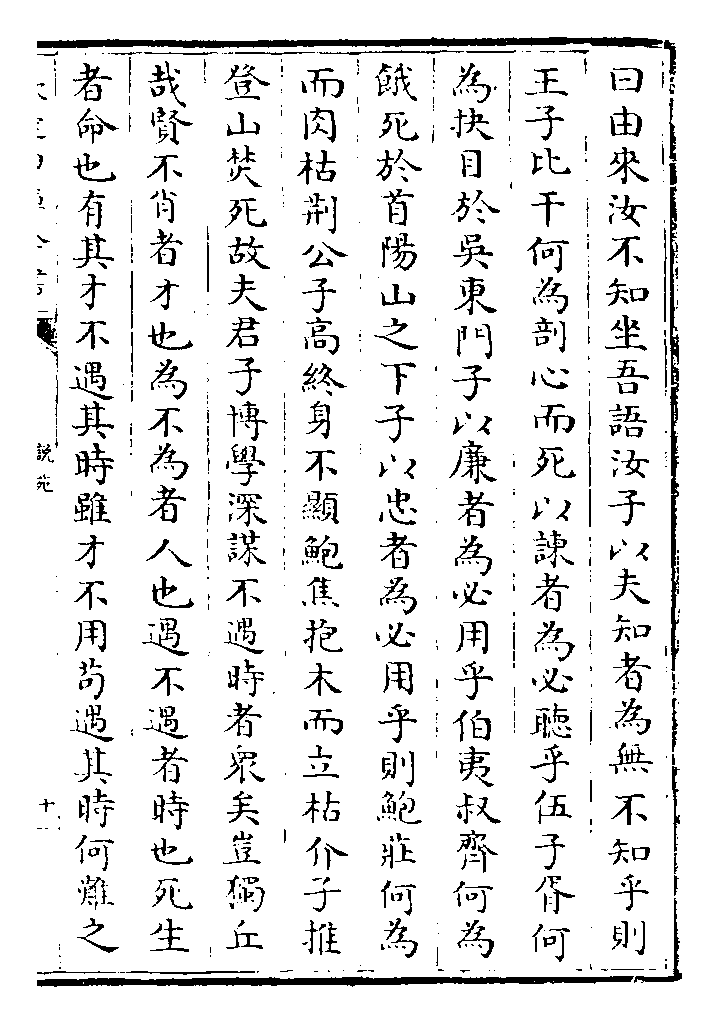 曰由來汝不知坐吾語汝子以夫知者為無不知乎則
王子比干何為剖心而死以諫者為必聽乎伍子胥何
為抉目於吳東門子以廉者為必用乎伯夷叔齊何為
餓死於首陽山之下子以忠者為必用乎則鮑莊何為
而肉枯荆公子高終身不顯鮑焦抱木而立枯介子推
登山焚死故夫君子博學深謀不遇時者衆矣豈獨丘
哉賢不肖者才也為不為者人也遇不遇者時也死生
者命也有其才不遇其時雖才不用苟遇其時何難之
說苑
十一